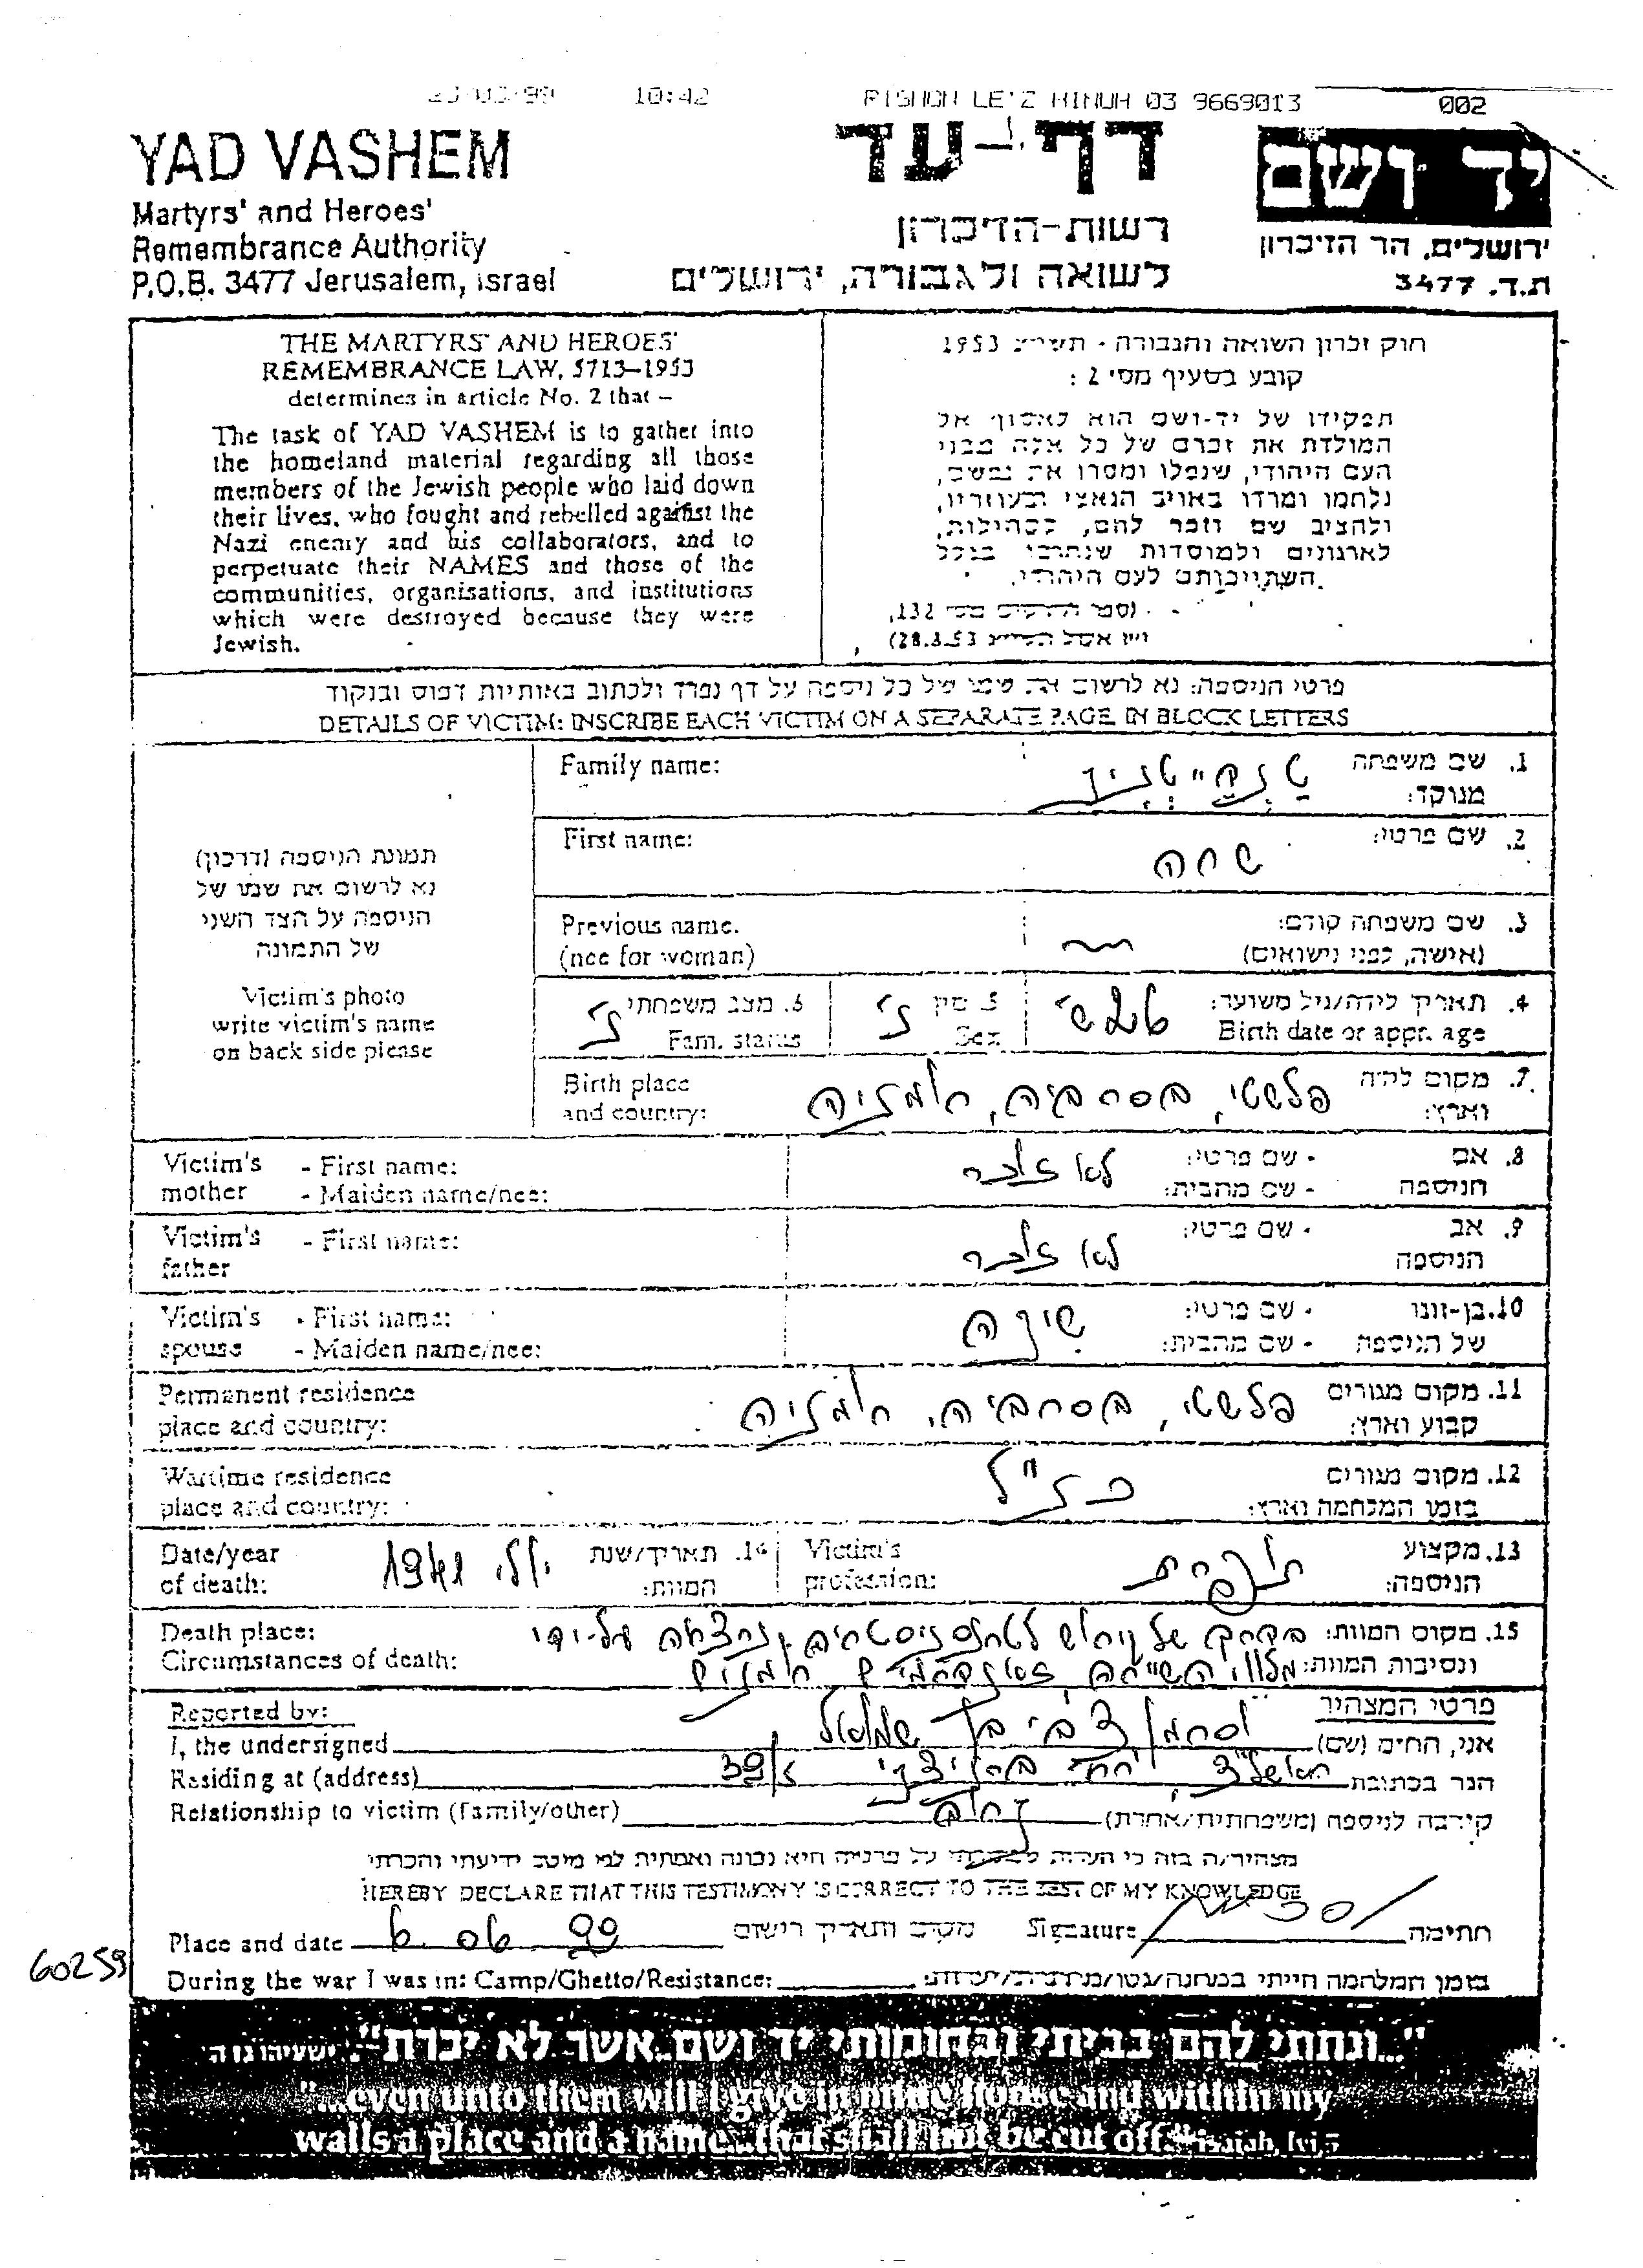 10:42 RISHON LE'Z MINUH 03 9669013 002
YAD VASHEM
Martyrs' and Heroes'
Remembrance Authority
P.O.B. 3477 Jerusalem, Israel
דף-עד
רשות-הזיכרון
לשואה ולגבורה, ירושלים
יד ושם
ירושלים, הר הזיכרון
ת.ד. 3477
THE MARTYRS' AND HEROES'
REMEMBRANCE LAW, 5713–1953
determines in article No. 2 that –
The task of YAD VASHEM is to gather into
the homeland material regarding all those
members of the Jewish people who laid down
their lives, who fought and rebelled against the
Nazi enemy and his collaborators, and to
perpetuate their NAMES and those of the
communities, organisations, and institutions
which were destroyed because they were
Jewish.
חוק זכרון השואה והגבורה - תשי"ג 1953
קובע בסעיף מס' 2 :
תפקידו של יד-ושם הוא לאסוף אל
המולדת את זכרם של כל אלה מבני
העם היהודי, שנפלו ומסרו את נפשם,
נלחמו ומרדו באויב הנאצי ובעוזריו,
ולהציב שם וזכר להם, לקהילות,
לארגונים ולמוסדות שנחרבו בגלל
השתייכותם לעם היהודי.
(ספר החוקים מס' 132,
28.8.53)
פרטי הניספה: נא לרשום את שמו של כל ניספה על דף נפרד ולכתוב באותיות דפוס ובנקוד
DETAILS OF VICTIM: INSCRIBE EACH VICTIM ON A SEPARATE PAGE IN BLOCK LETTERS
תמונת הניספה (דרכון)
נא לרשום את שמו של
הניספה על הצד השני
של התמונה
Victim's photo
write victim's name
on back side please
Family name:
1. שם משפחה
מנוקד:
First name: שרה 2. שם פרטי:
Previous name.
(nee for woman)
3. שם משפחה קודם:
(אישה, לפני נישואים)
4. תאריך לידה/גיל משוער:
Birth date or appr. age
5. מין נ'
Sex
6. מצב משפחתי נ'
Fam. status
Birth place
and country:
בסרביה, רומניה
7. מקום לידה
וארץ:
Victim's mother - First name:
- Maiden name/nee:
לא זוכר
8. אם הניספה - שם פרטי:
- שם מהבית:
Victim's father - First name:
לא זוכר
9. אב הניספה - שם פרטי:
Victim's spouse - First name:
- Maiden name/nee:
10. בן-זוגו של הניספה - שם פרטי:
- שם מהבית:
Permanent residence
place and country:
בסרביה, רומניה
11. מקום מגורים
קבוע וארץ:
Wartime residence
place and country:
כנ"ל
12. מקום מגורים
בזמן המלחמה וארץ:
Date/year
of death:
יולי 1941
14. תאריך/שנת
המוות:
Victim's
profession:
13. מקצוע
הניספה:
Death place:
Circumstances of death:
15. מקום המוות: בדרך של גירוש לטרנסניסטריה נרצחה על-ידי
ונסיבות המוות: רומנים
Reported by: פרטי המצהיר
I, the undersigned צבי בן שמואל אני, החים (שם)
Residing at (address) 39/ הגר בכתובת
Relationship to victim (family/other) קירבה לניספה (משפחתית/אחרת)
מצהיר/ה בזה כי העדות שמסרתי על פרטיה היא נכונה ואמתית לפי מיטב ידיעתי והכרתי
HEREBY DECLARE THAT THIS TESTIMONY IS CORRECT TO THE BEST OF MY KNOWLEDGE
Place and date 6. 06. 99 מקום ותאריך רישום Signature חתימה
60259
During the war I was in: Camp/Ghetto/Resistance: בזמן המלחמה הייתי במחנה/גטו
"...ונתתי להם בביתי ובחומותי יד ושם אשר לא יכרת". ישעיהו נו ה
"...even unto them will I give in mine house and within my
walls a place and a name...that shall not be cut off." isaiah, lvi, 5